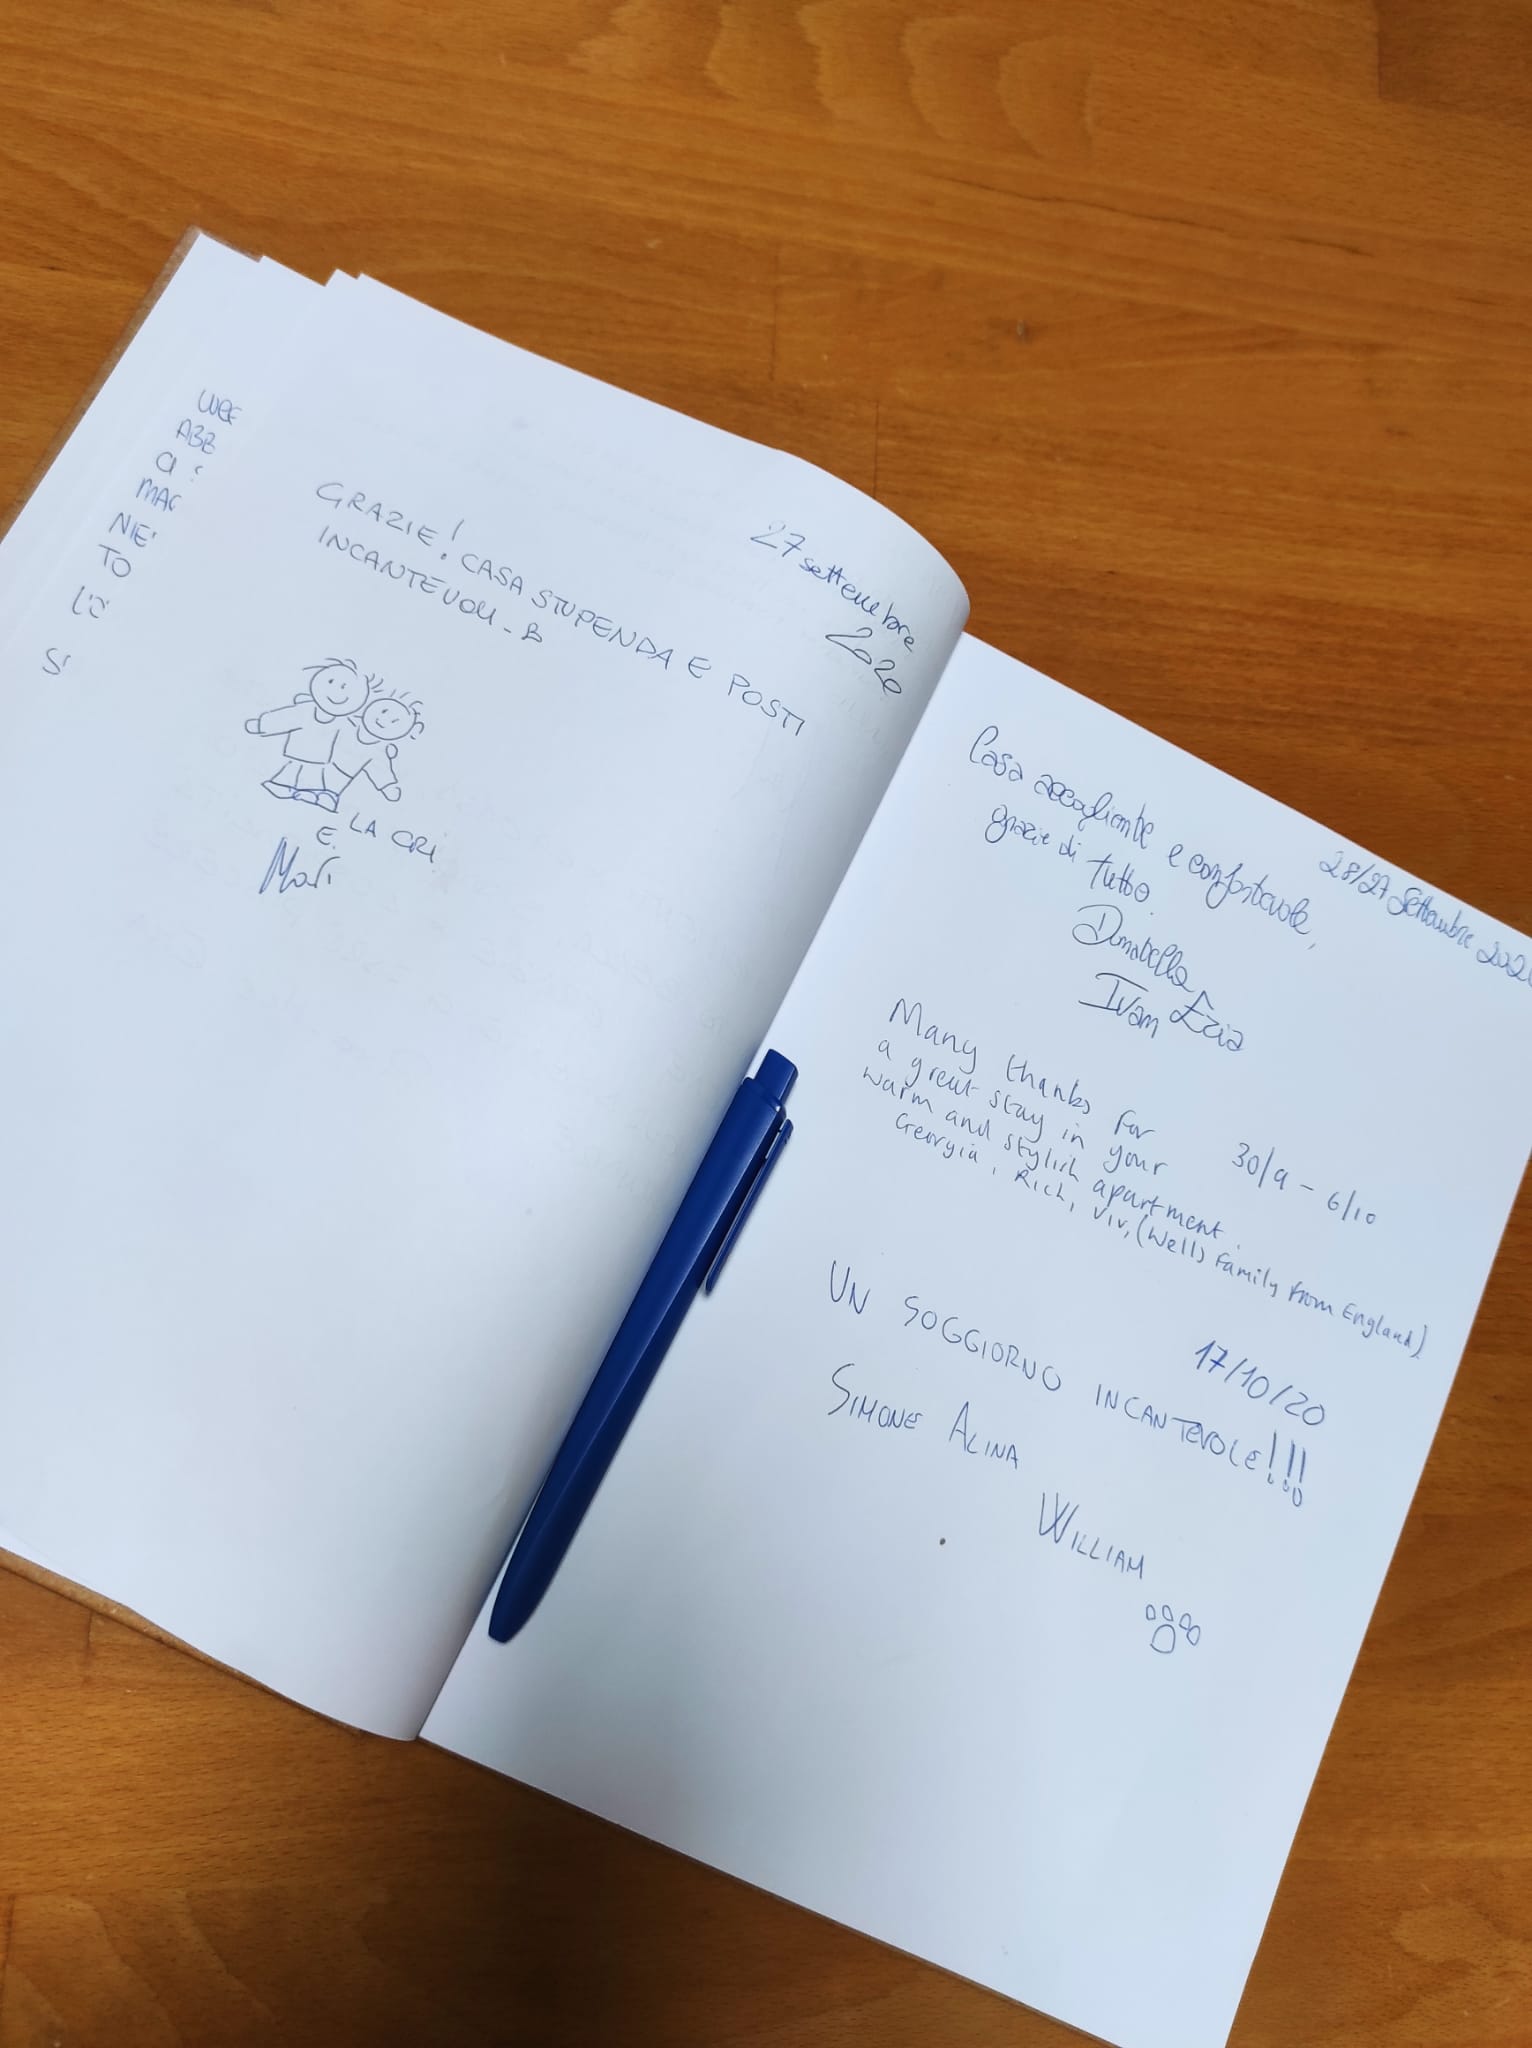 27 settembre
2020
GRAZIE! CASA STUPENDA E POSTI
INCANTEVOLI
LA CRI
E
ABB
MAG
TO
28/27 Settembre 2020
Casa accogliente e confortevole,
grazie di tutto.
Donatella, Ezia
Ivan
Many thanks for
a great stay in your
warm and stylish apartment.
Georgia, Rich, Viv, (Wells Family from England)
30/9 - 6/10
17/10/20
UN SOGGIORNO INCANTEVOLE!!!
SIMONE ALINA
WILLIAM